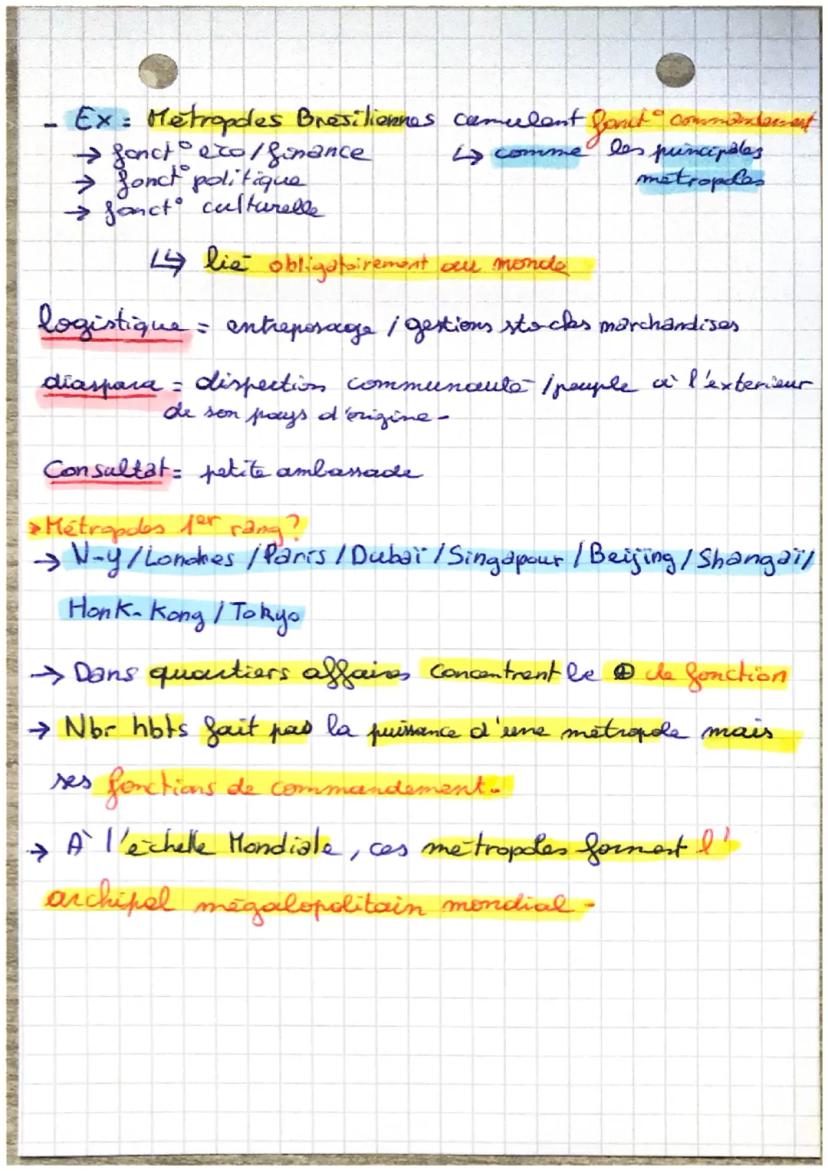 - Ex : Métropoles Brésiliennes cumulent fonct° commandement
→ fonct° eco/finance ↳ comme les principales
→ fonct° politique métropoles
→ fonct° culturelle
↳ lié obligatoirement au monde
logistique = entreposage / gestions stocks marchandises
diaspara = dispection communauté /peuple à l'exterieur
de son pays d'origine -
Consultat = petite ambassade
> Métropoles 1er rang ?
→ N-y/Londres /Paris/Dubaï/Singapour/Beijing/Shangaï/
Honk-Kong/Tokyo
→ Dans quartiers affaires concentrent le ⊕ de fonction
→ Nbr hbts fait pas la puissance d'une métropole mais
ses fonctions de commandement.
→ A l'échelle Mondiale, ces métropoles forment l'
archipel mégalopolitain mondial -